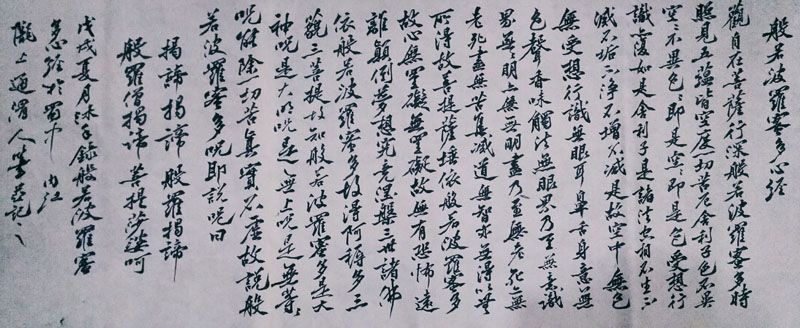 般若波羅蜜多心經
觀自在菩薩行深般若波羅蜜多時
照見五蘊皆空度一切苦厄舍利子色不異
空々不異色々即是空々即是色受想行
識亦復如是舍利子是諸法空相不生不
滅不垢不淨不增不減是故空中無色
無受想行識無眼耳鼻舌身意無
色聲香味觸法無眼界乃至無意識
界無無明亦無無明盡乃至無老死亦無
老死盡無苦集滅道無智亦無得以無
所得故菩提薩埵依般若波羅蜜多
故心無罣礙無罣礙故無有恐怖遠
離顛倒夢想究竟涅槃三世諸佛
依般若波羅蜜多故得阿耨多三
藐三菩提故知般若波羅蜜多是大
神呪是大明呪是無上呪是無等々
呪能除一切苦真實不虛故說般
若波羅蜜多呪即說呪曰
揭諦揭諦 般羅揭諦
般羅僧揭諦 菩提莎婆呵
戊戌夏月沐手錄般若波羅蜜
多心經於蜀中內江
隴上通渭人 記之